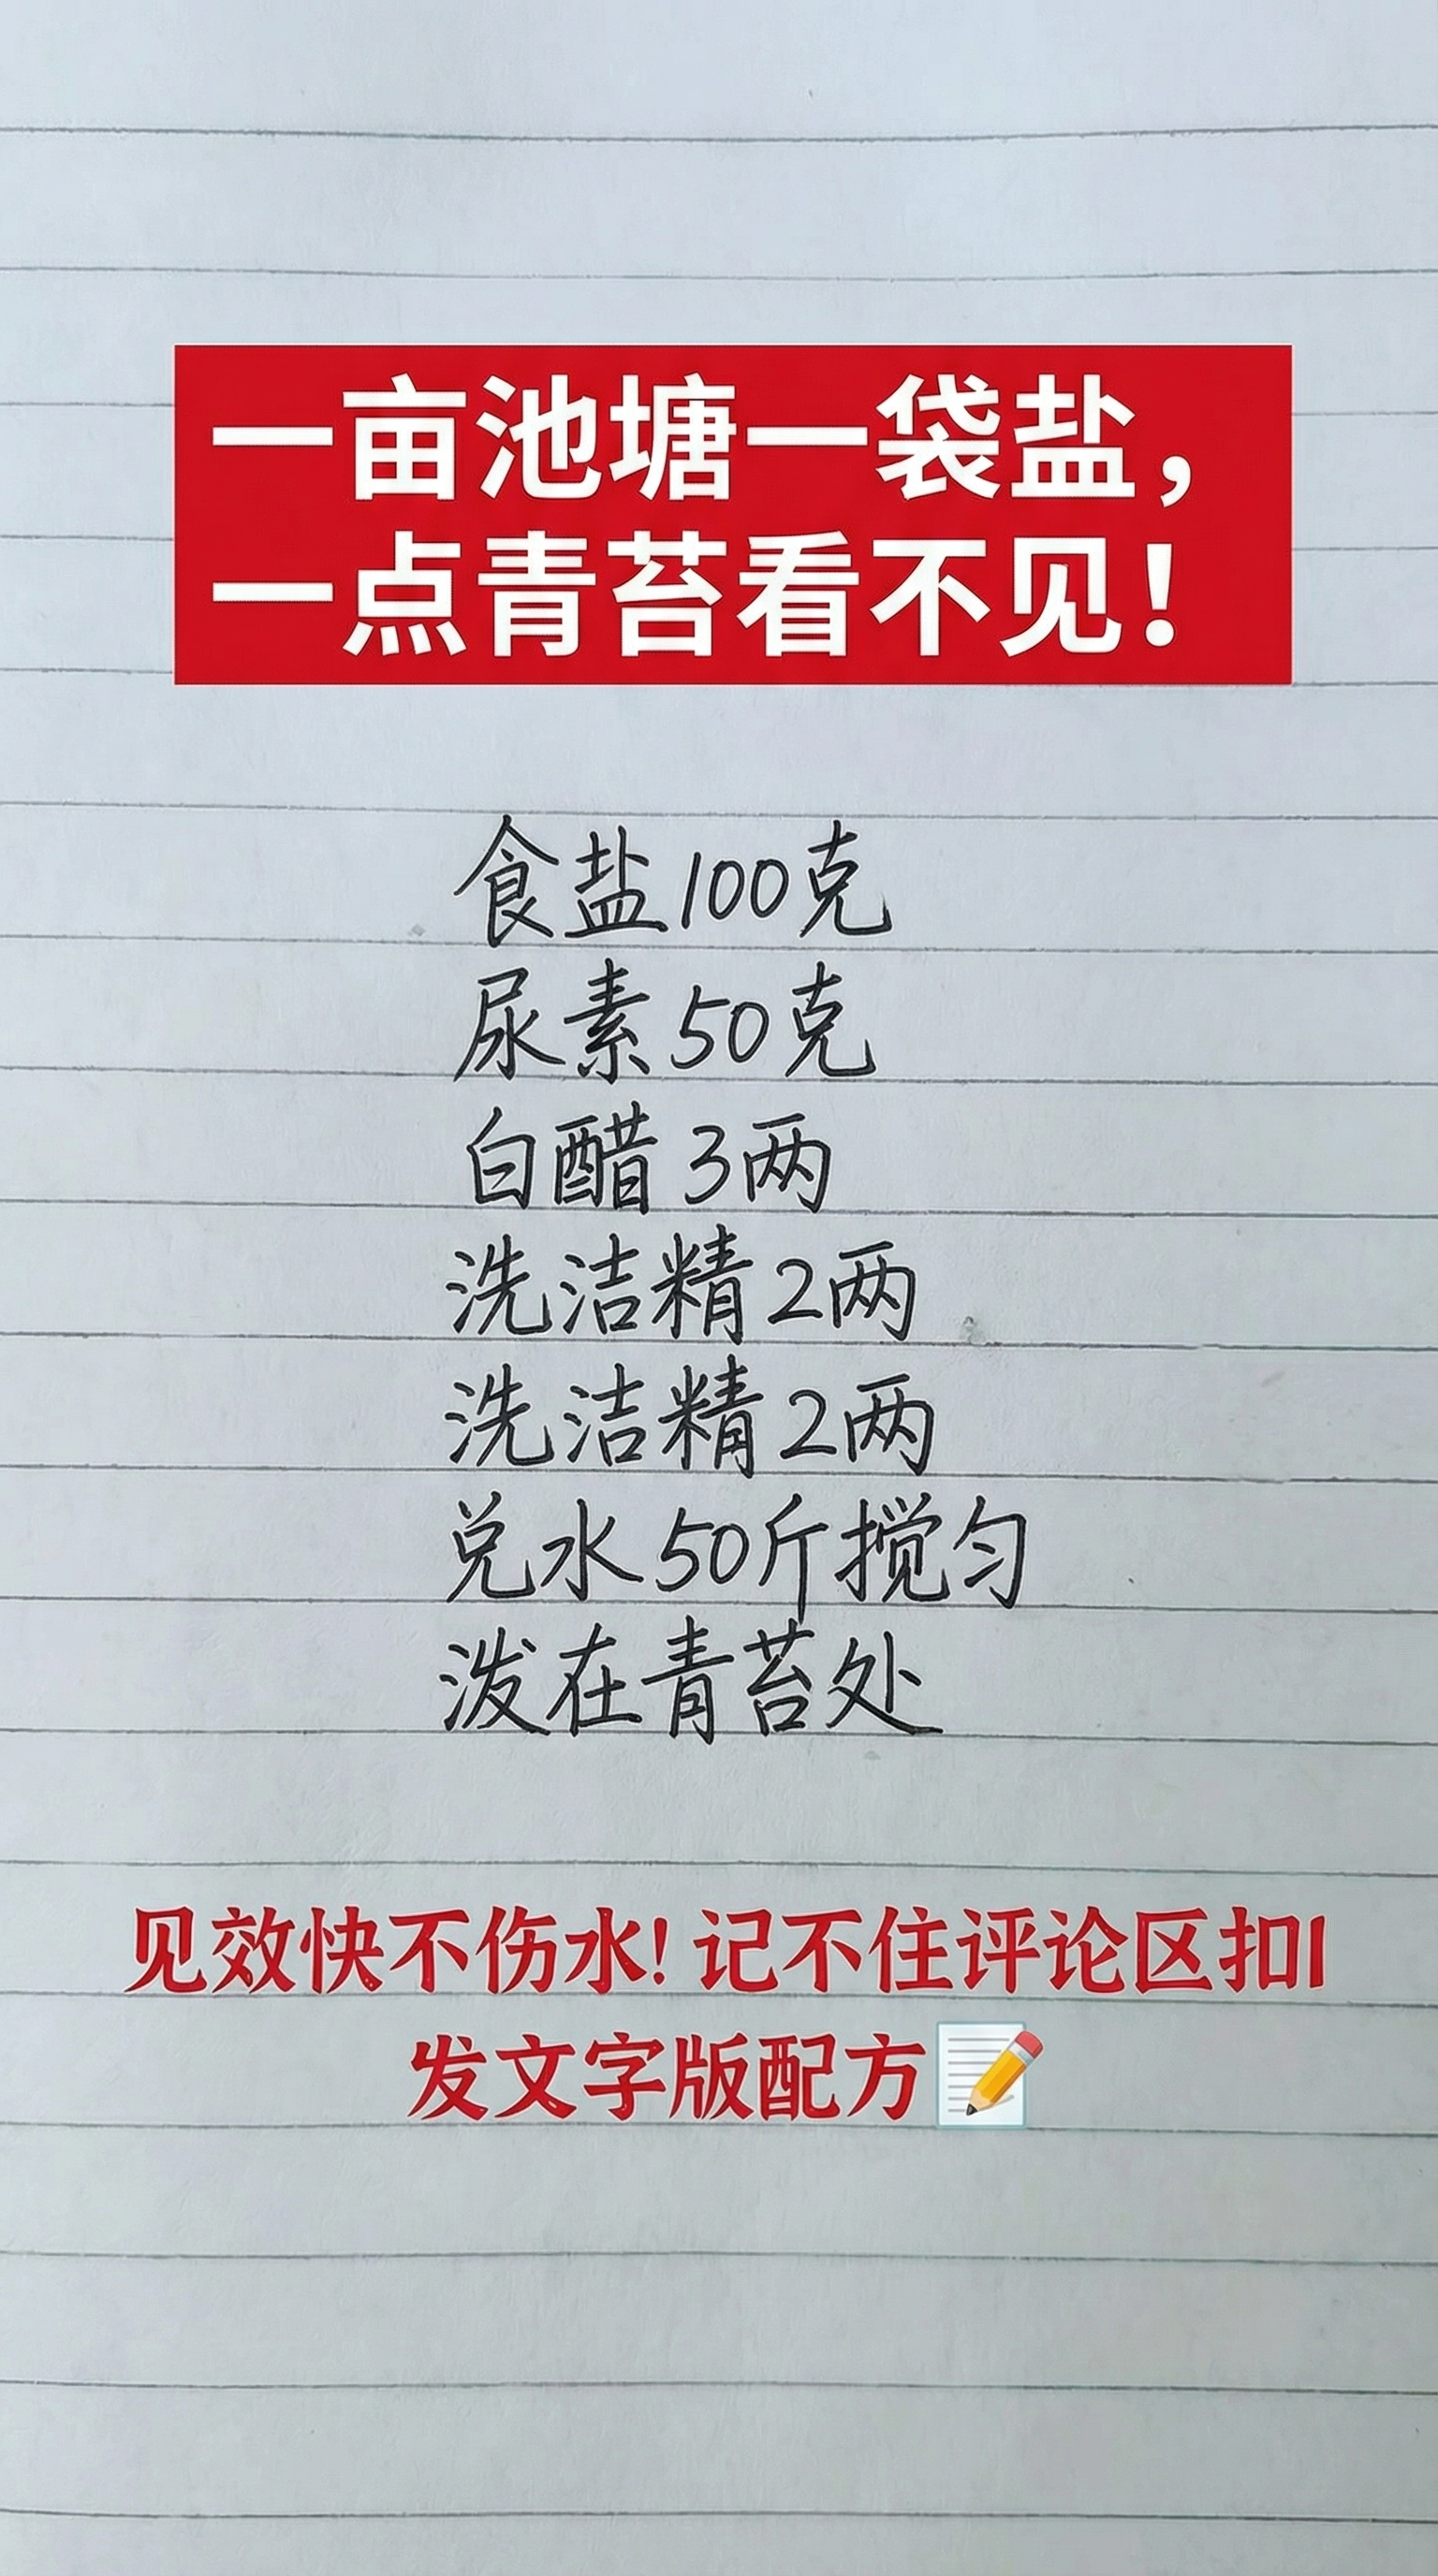 一亩池塘一袋盐，
一点青苔看不见！
食盐100克
尿素50克
白醋3两
洗洁精2两
洗洁精2两
兑水50斤搅匀
泼在青苔处
见效快不伤水！记不住评论区扣1
发文字版配方